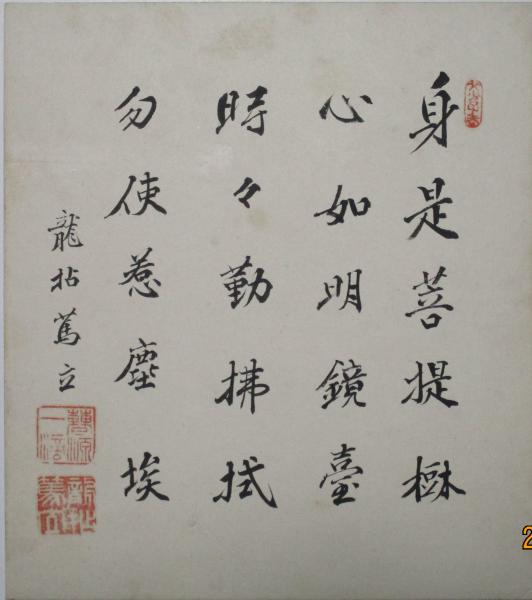 身是菩提樹
心如明鏡臺
時々勤拂拭
勿使惹塵埃
龍拈立
2